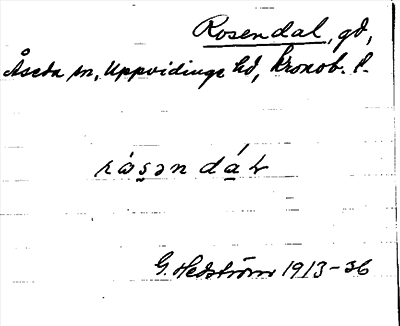 Rosendal, gd,
Åseda sn, Uppvidinge hd, Kronob. l.
råsəndáL
G. Hedström 1913-36